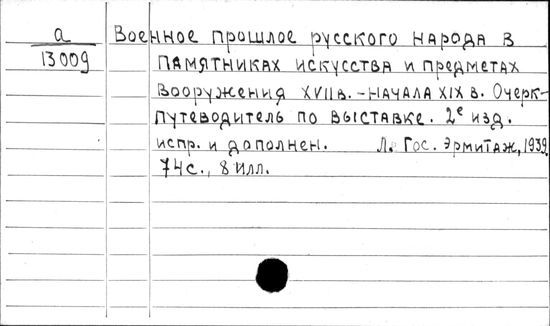 а Военное прошлое русского народа в
13009 памятниках искусства и предметах
вооружения XVII в. – начала XIX в. Очерк-
путеводитель по выставке. 2е изд.
испр. и дополнен. Л. Гос. Эрмитаж, 1939.
74 с., 8 илл.